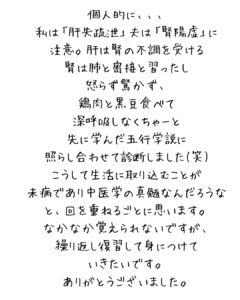 個人的に、、、
私は「肝失疏泄」夫は「腎陽虚」に
注意。肝は腎の不調を受ける
腎は肺と密接と習ったし
怒らず驚かず、
鶏肉と黒豆食べて
深呼吸しなくちゃーと
先に学んだ五行学説に
照らし合わせて診断しました(笑)
こうして生活に取り込むことが
未病であり中医学の真髄なんだろうな
と、回を重ねるごとに思います。
なかなか覚えられないですが、
繰り返し復習して身につけて
いきたいです。
ありがとうございました。